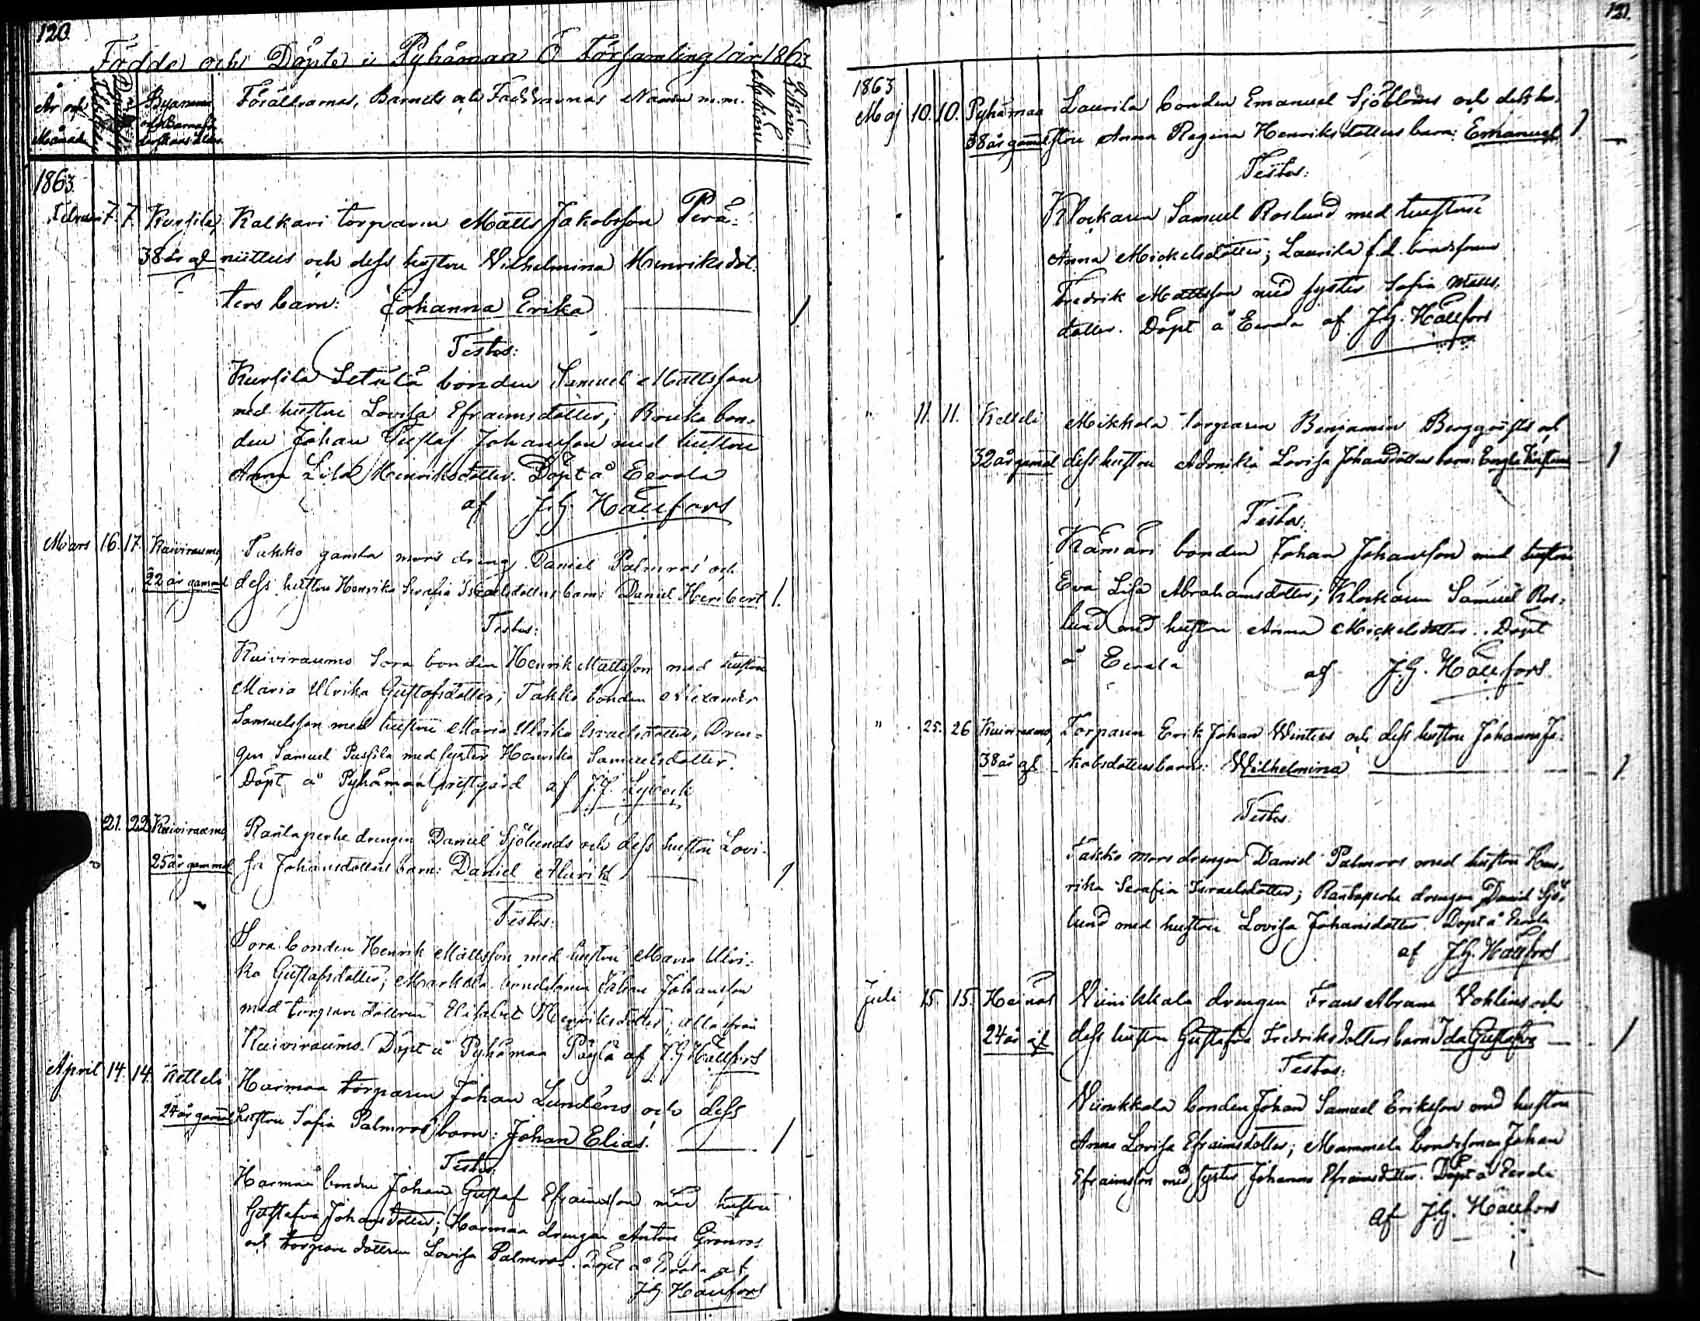 120.
Födde och Döpte i Pyhämaa Ö Församling år 1863
År och Månad
Byanamn och Barnets
Föräldrarnas, Barnets och Faddrarnas Namn m.m.
1863.
Februari 7. 7. Kursila, Kalkari torparen Matts Jakobsson Perä-
38 år gl niittus och dess hustru Wilhelmina Henriksdot-
ters barn: Johanna Erika 1
Testes:
Kursila Setälä bonden Samuel Mattsson
med hustru Lovisa Efraimsdotter; Rouko bon-
den Johan Gustaf Johansson med hustru
Anna Lisa Henriksdotter. Döpt å Eerola
af J.G. Hällfors
Mars 16. 17. Kaiviraumo, Takko gamla mors dräng Daniel Palmros och
22 år gammal dess hustru Henrika Serafia Israelsdotters barn: Daniel Heribert 1.
Testes:
Kuiviraumo Sora bonden Henrik Mattsson med hustru
Maria Ulrika Gustafsdotter; Takko bonden Alexander
Samuelsson med hustru Maria Ulrika Israelsdotter, Drän-
gen Samuel med syster Henrika Samuelsdotter.
Döpt å Pyhämaa prestgård af
21. 22. Kuiviraumo, Rantaperke drengen Daniel Sjölunds och dess hustru Lovi-
25 år gammal sa Johansdotters barn: Daniel Alurik 1
Testes:
Sora bonden Henrik Mattsson med hustru Maria Ulri-
ka Gustafsdotter; bondesonen Johan Johansson
med torpare dottren Elisabet Henriksdotter; alla från
Kuiviraumo. Döpt å Pyhämaa af J.G. Hällfors
April 14. 14. Ketteli Harmaa torparen Johan Lundéns och dess
24 år gammal hustru Sofia Palmros barn: Johan Elias. 1
Testes:
Harmaa bonden Johan Gustaf Efraimsson med hustru
Gustafva Johansdotter; Harmaa drengen Anton Grönros
och torpare dottren Lovisa Palmros. Döpt å Eerola af
J.G. Hällfors
121.
1863
Maj 10. 10. Pyhämaa Laurila bonden Emanuel Sjöbloms och dess hu-
38 år gammal stru Anna Regina Henriksdotters barn: Emanuel 1
Testes:
Klockaren Samuel Roslund med hustru
Anna Mickelsdotter; Laurila f.d. bondesonen
Fredrik Mattsson med syster Sofia Matts-
dotter. Döpt å Eerola af J.G. Hällfors
" 11. 11. Ketteli Mikkola torparen Benjamin Bergqvists och
32 år gammal dess hustru Lovisa Johansdotters barn: 1
Testes:
Kämäri bonden Johan Johansson med hustru
Eva Lisa Abrahamsdotter; Klockaren Samuel Ros-
lund med hustru Anna Mickelsdotter. Döpt
å Eerola af J.G. Hällfors.
" 25. 26 Kuiviraumo, Torparen Erik Johan Winters och dess hustru Johanna Ja-
38 år gl kobsdotters barn: Wilhelmina 1
Testes
Takko mors drengen Daniel Palmros med hustru Hen-
rika Serafia Israelsdotter; Rantaperke drengen Daniel Sjö-
lund med hustru Lovisa Johansdotter. Döpt å Eerola
af J.G. Hällfors
Juli 15. 15. Heinäs Viinikkala drengen Frans Abram Wahlins och
24 år gl dess hustru Gustafva Fredriksdotters barn Ida Gustafva 1
Testes:
Viinikkala bonden Johan Samuel Eriksson med hustru
Anna Lovisa Efraimsdotter; Mammela bondesonen Johan
Efraimsson med syster Johanna Efraimsdotter. Döpt å Eerola
af J.G. Hällfors